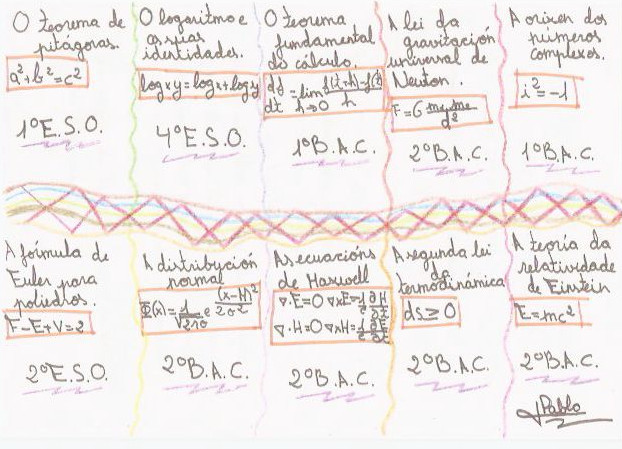 O teorema de
pitágoras.
a²+b²=c²
1ºE.S.O.
O logaritmo e
as súas
identidades.
log xy = log x + log y
4ºE.S.O.
O teorema
fundamental
do cálculo.
df/dt = lim h→0 f(t+h)-f(t)/h
1ºB.A.C.
A lei da
gravitación
universal de
Newton.
F=G m₁.m₂/d²
2ºB.A.C.
A orixen dos
números
complexos.
i²=-1
1ºB.A.C.
A fórmula de
Euler para
poliedros.
F-E+V=2
2ºE.S.O.
A distribución
normal
Φ(x)= 1/√2πσ e (x-μ)²/2σ²
2ºB.A.C.
As ecuacións
de Maxwell
∇·E=0 ∇xE=-1/c ∂H/∂t
∇·H=0 ∇xH=1/c ∂E/∂t
2ºB.A.C.
A segunda lei
da
termodinámica
ds≥0
2ºB.A.C.
A teoría da
relatividade
de Einstein
E=mc²
2ºB.A.C.
Pablo